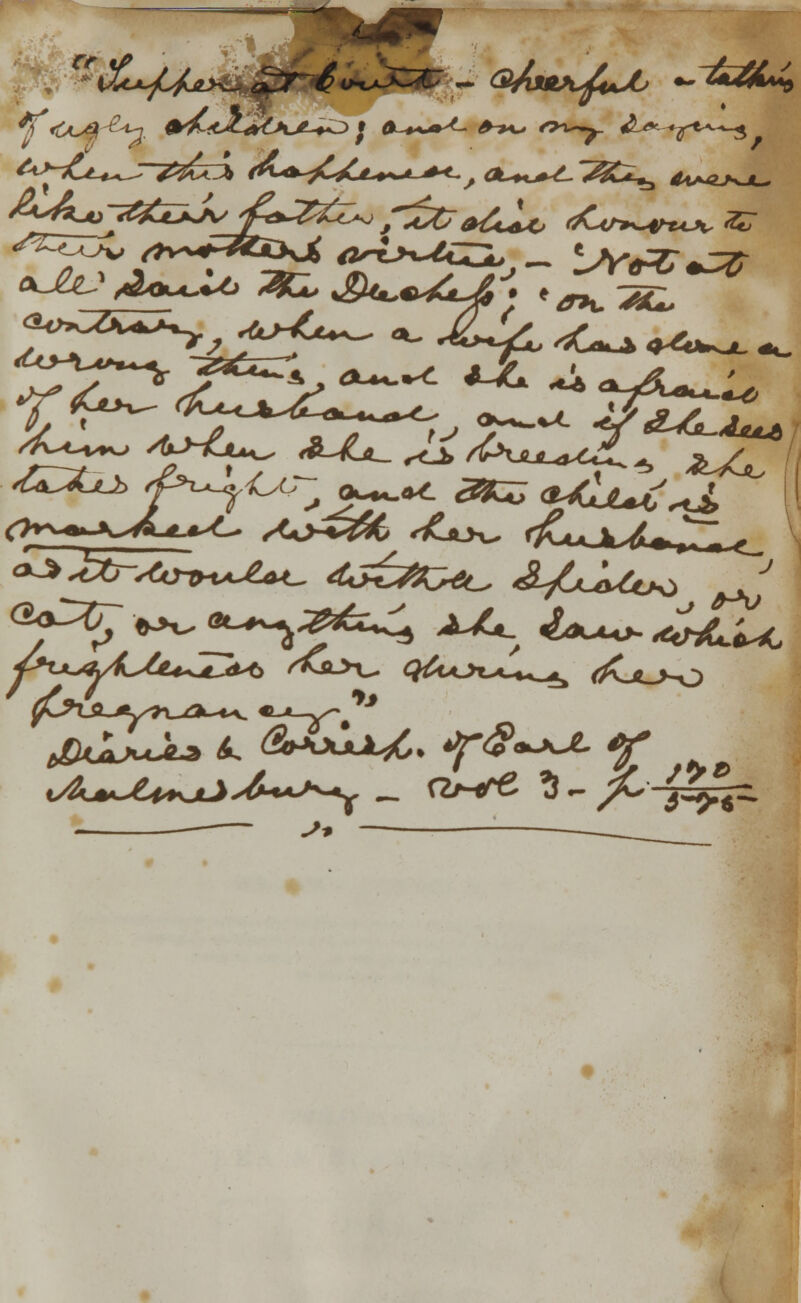 "Supper at Court - cheerful - talking
of ugly children; and on my saying,
when this happened, and they were
like their father, it did honour to
their mothers virtue, - 'Not at
all' said the Duchess; 'on the
contrary, when a wife has done a
wrong thing, and she is afraid
of her husband, and if she sees
him when she is breeding, she
takes fright, and the child is
marked with her husband,
as it would with a spider, or
cat, or anything she saw which
frightened her during her
pregnancy."
Diaries & Corresp. of Earl of
Malmesbury - vol 3 - p